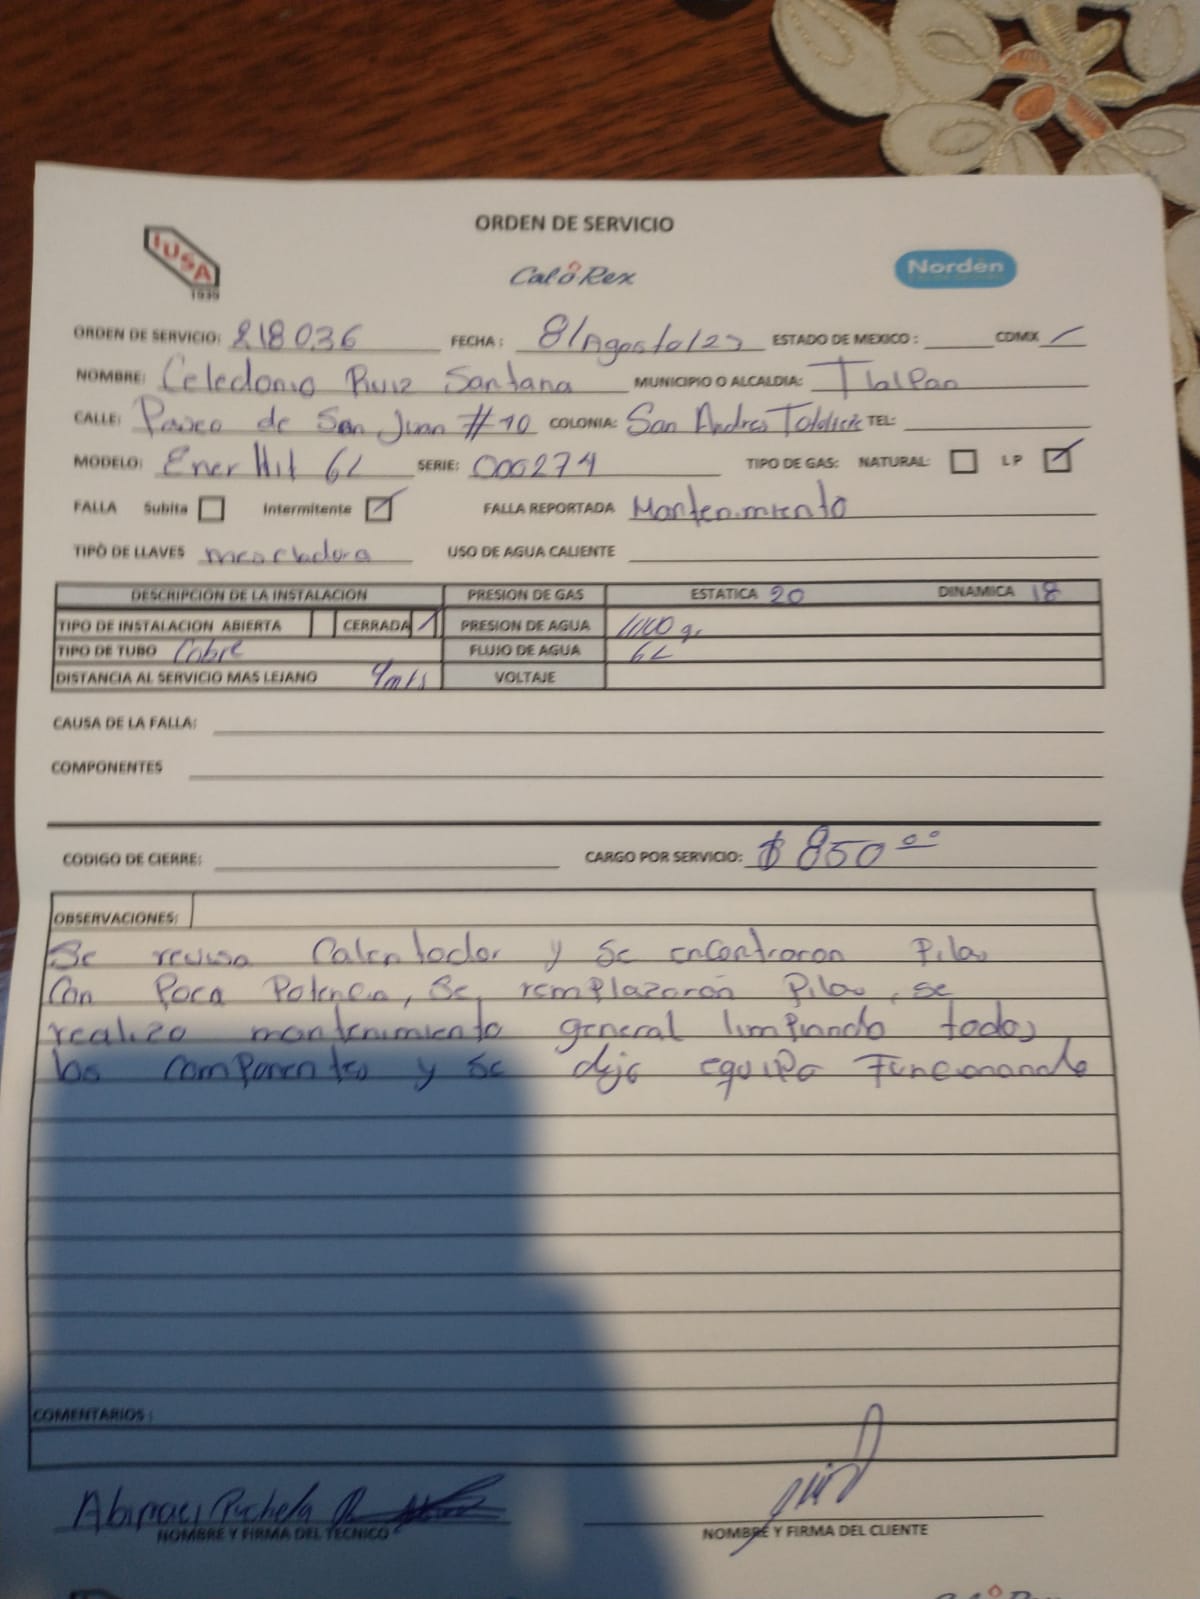 ORDEN DE SERVICIO
IUSA
1939
CaloRex
Norden
ORDEN DE SERVICIO: 218036 FECHA: 8/Agosto/23 ESTADO DE MEXICO: CDMX /
NOMBRE: Celedonio Ruiz Santana MUNICIPIO O ALCALDIA: Tlalpan
CALLE: Paseo de San Juan #10 COLONIA: San Andres TEL:
MODELO: Ener Hit 6L SERIE: 000274 TIPO DE GAS: NATURAL: LP
FALLA Subita Intermitente FALLA REPORTADA Mantenimiento
TIPO DE LLAVES mescladora USO DE AGUA CALIENTE
DESCRIPCION DE LA INSTALACION PRESION DE GAS ESTATICA 20 DINAMICA 18
TIPO DE INSTALACION ABIERTA CERRADA / PRESION DE AGUA gr
TIPO DE TUBO Cobre FLUJO DE AGUA 6L
DISTANCIA AL SERVICIO MAS LEJANO mts VOLTAJE
CAUSA DE LA FALLA:
COMPONENTES
CODIGO DE CIERRE: CARGO POR SERVICIO: $ 850 00
OBSERVACIONES:
Se revisa Calentador y se encontraron Pilas
Con Poca Potencia, Se remplazaron Pilas, se
realizo mantenimiento general limpiando todos
los componentes y se dejo equipo Funcionando
COMENTARIOS :
Abinaei Puchela
NOMBRE Y FIRMA DEL TECNICO NOMBRE Y FIRMA DEL CLIENTE